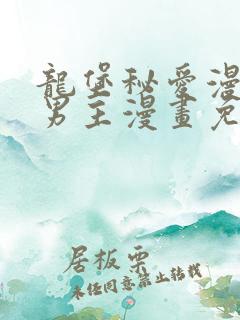 龍堡秘愛漫
男主漫畫免
居板栗
未经同意禁止转载